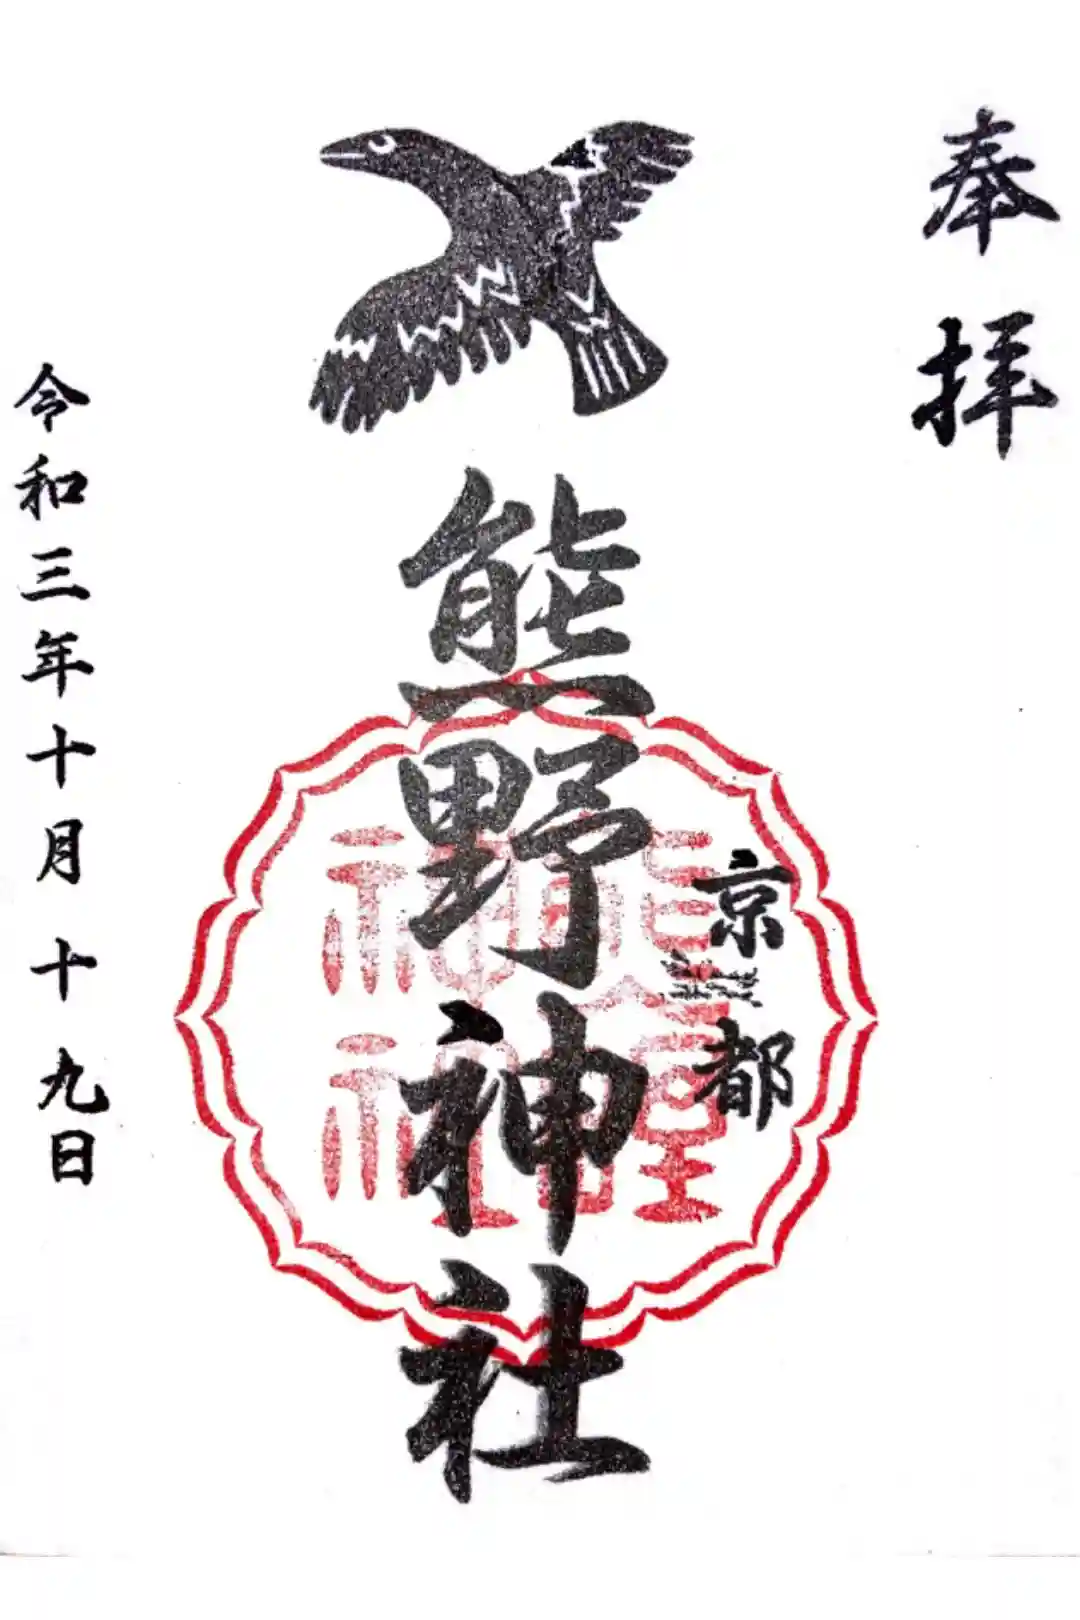 奉拝
京都
熊野神社
令和三年十月十九日